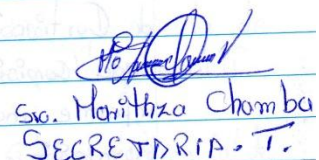 Sra. Marithza Chamba
SECRETARIA. T.